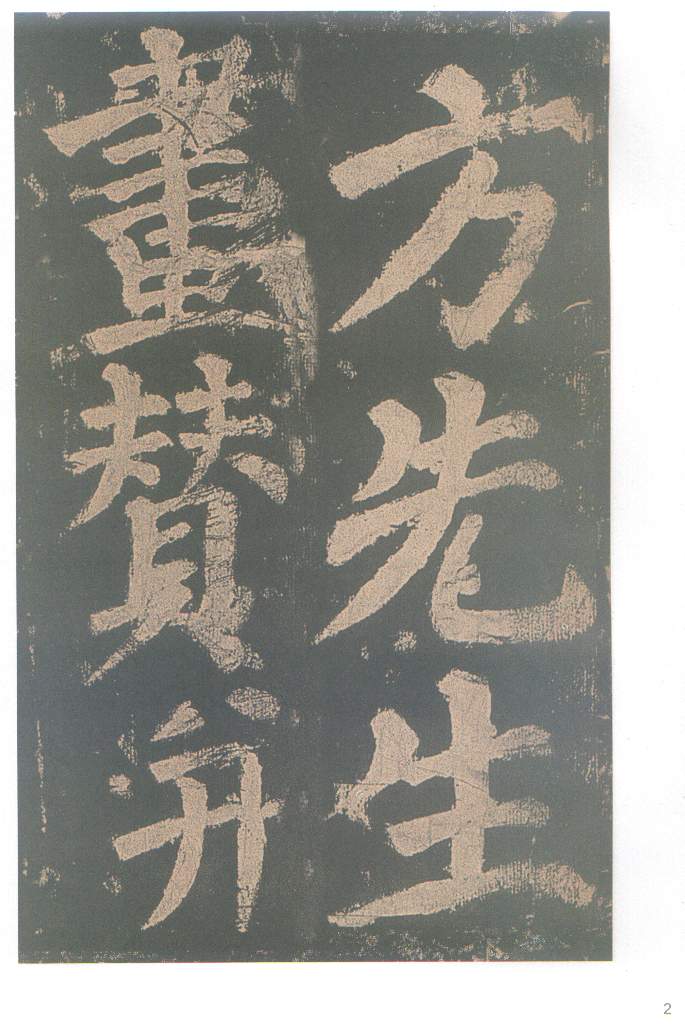 方先生
畫赞并
2